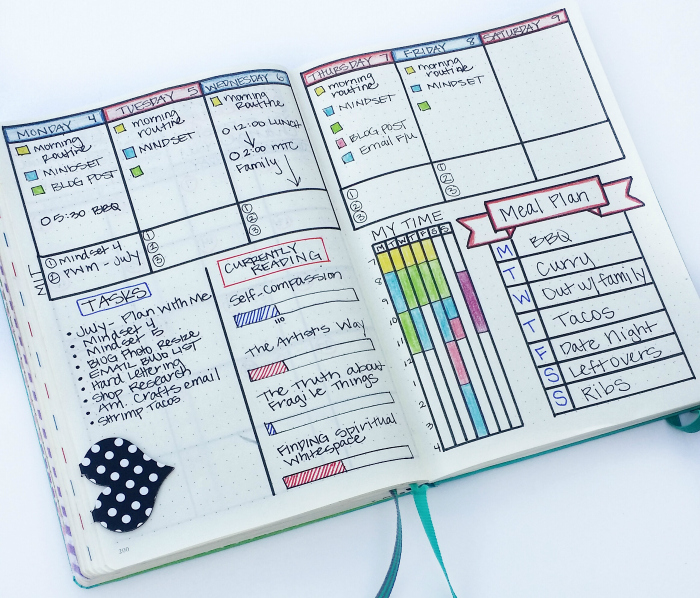 MONDAY 4
morning
routine
MINDSET
BLOG POST
5:30 BBQ
MIT
① Mindset 4
② PWIM - July
TUESDAY 5
morning
routine
MINDSET
①
②
③
WEDNESDAY 6
morning
routine
12:00 LUNCH
2:00 MTC
Family
①
②
③
THURSDAY 7
morning
routine
MINDSET
BLOG POST
Email F/u
①
②
③
FRIDAY 8
morning
routine
MINDSET
①
②
③
SATURDAY 9
TASKS
• July - Plan With Me
• Mindset 4
• Mindset 5
• BLOG Photo Resize
• EMAIL BWD LIST
• Hard Lettering
• Shop Research
• Am. Crafts email
• Shrimp Tacos
CURRENTLY
READING
Self-Compassion
110
The Artist's Way
The Truth about
Fragile Things
FINDING Spiritual
Whitespace
MY TIME
M T W T F S S
7
8
9
10
11
12
1
2
3
4
Meal Plan
M BBQ
T Curry
W Out w/ family
T Tacos
F Date Night
S Leftovers
S Ribs
200